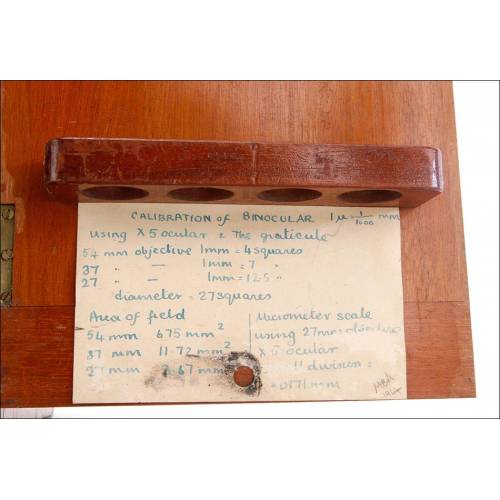 CALIBRATION of BINOCULAR 1µ = 1/1000 mm
using X 5 ocular & The graticule
54 mm objective 1mm = 4 squares
37 " — 1mm = 7 "
27 " — 1mm = 12.5 "
diameter = 27 squares
Area of field
54 mm 675 mm²
37 mm 11.72 mm²
27 mm .67 mm²
Micrometer scale
using 27mm objective
X 5 ocular
" division =
.0171 mm